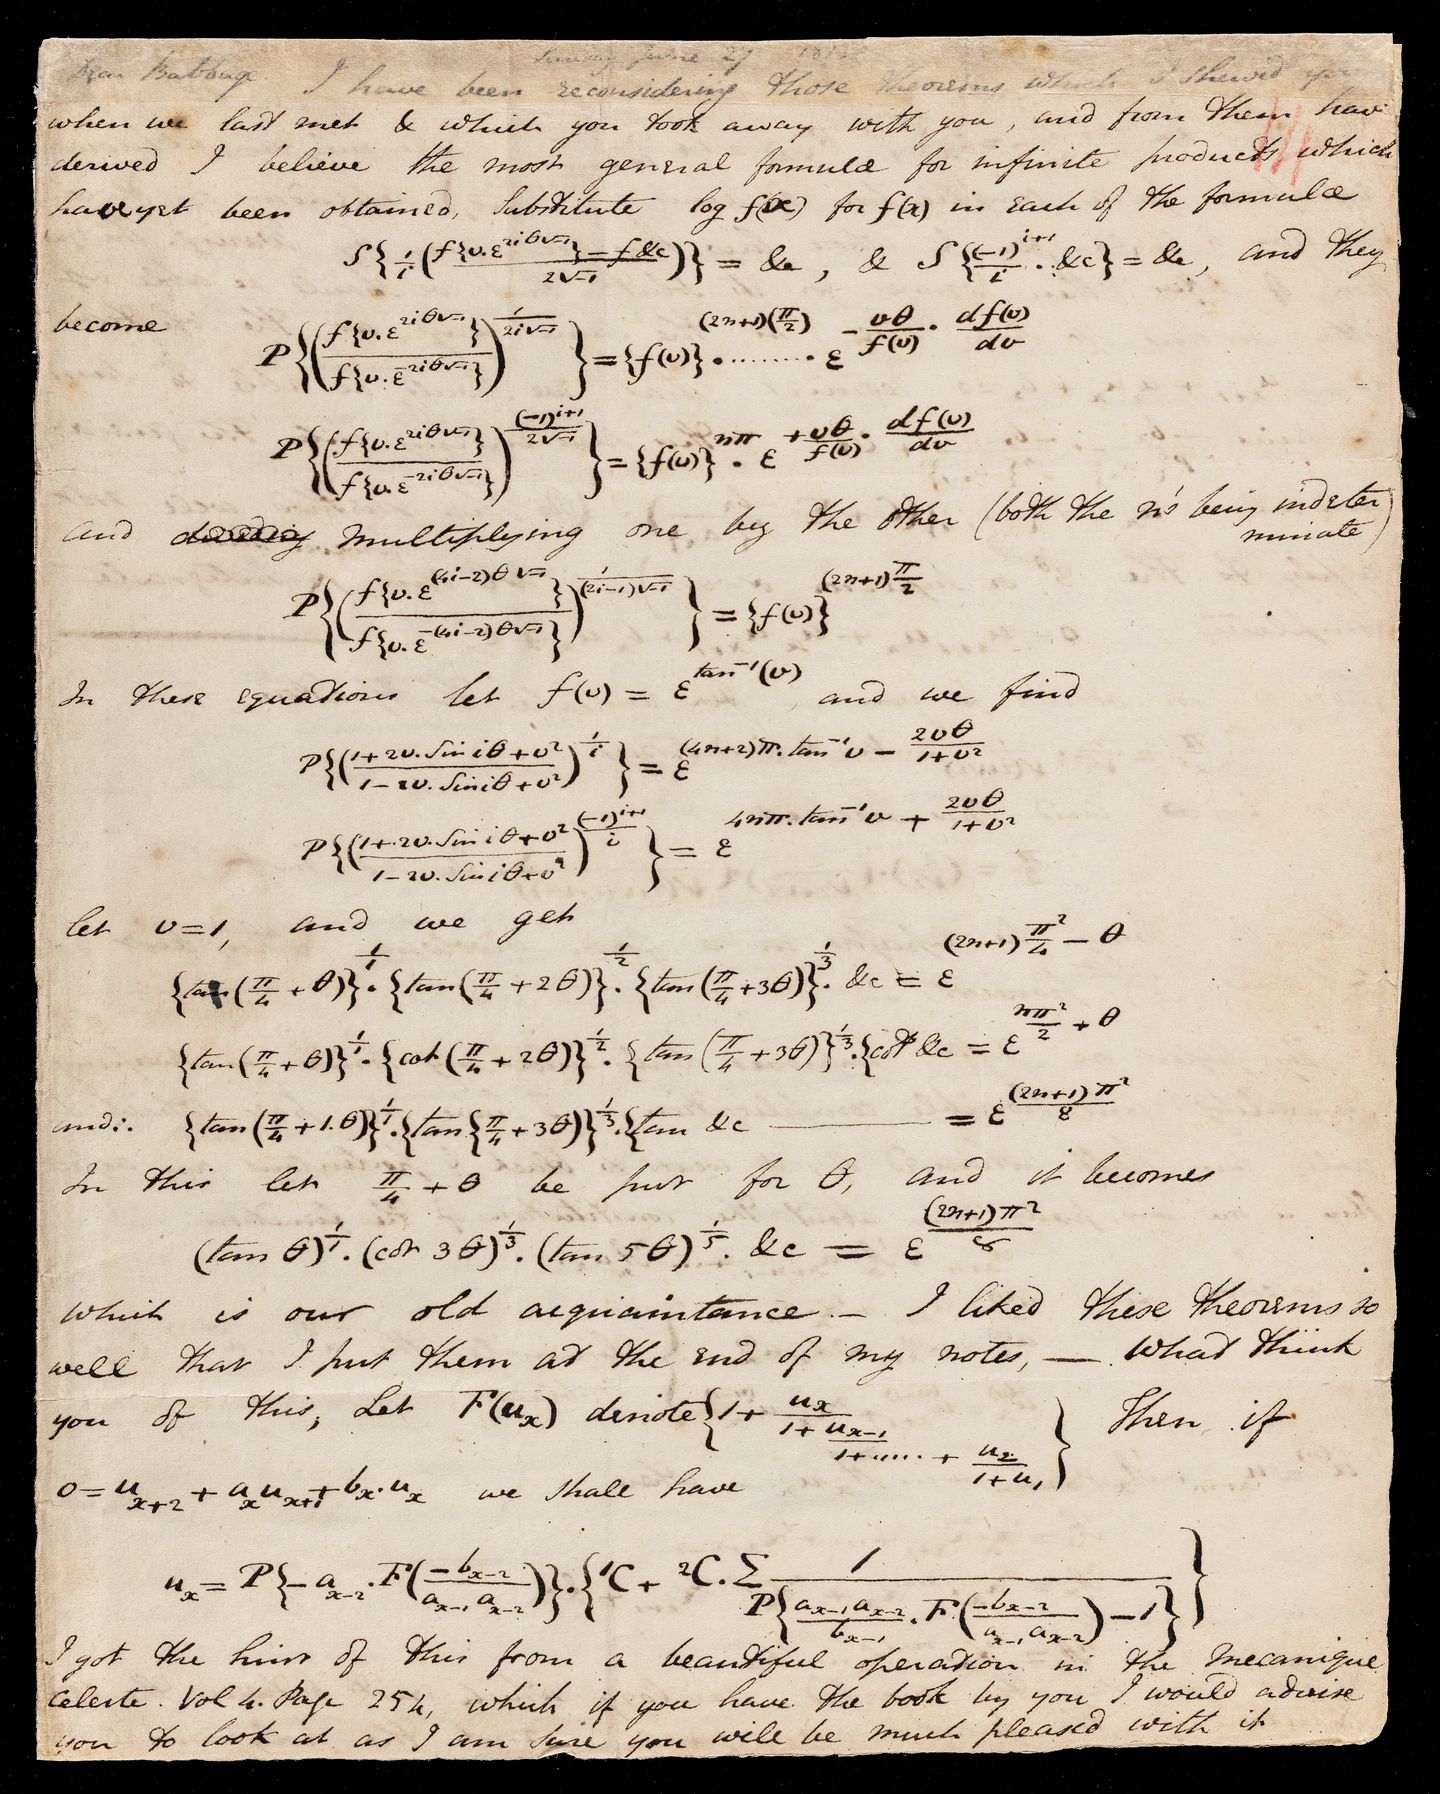 Dear Babbage. Sunday June 27
I have been reconsidering those theorems which I shewed you
when we last met & which you took away with you, and from them have
derived I believe the most general formulæ for infinite products which
have yet been obtained, Substitute log f(x) for f(x) in each of the formulæ
S{1/i (f{υ.ε^{2iθ√-1}} - f &c / 2√-1)} = &c, & S{(-1)^{i+1}/i . &c} = &c, and they
become P{(f{υ.ε^{2iθ√-1}} / f{υ.ε^{-2iθ√-1}})^{1/2i√-1}} = {f(υ)}^{(2n+1)(π/2)} ........ ε^{-υθ/f(υ) . df(υ)/dυ}
P{(f{υ.ε^{2iθ√-1}} / f{υ.ε^{-2iθ√-1}})^{(-1)^{i+1}/2√-1}} = {f(υ)}^{nπ} . ε^{+υθ/f(υ) . df(υ)/dυ}
and multiplying one by the other (both the n's being indeter
minate)
P{(f{υ.ε^{(4i-2)θ√-1}} / f{υ.ε^{-(4i-2)θ√-1}})^{1/(2i-1)√-1}} = {f(υ)}^{(2n+1)π/2}
In these equations let f(υ) = ε^{tan^{-1}(υ)} and we find
P{(1+2υ.Sin iθ+υ² / 1-2υ.Sin iθ+υ²)^{1/i}} = ε^{(4n+2)π.tan^{-1}υ - 2υθ/1+υ²}
P{(1+2υ.Sin iθ+υ² / 1-2υ.Sin iθ+υ²)^{(-1)^{i+1}/i}} = ε^{4nπ.tan^{-1}υ + 2υθ/1+υ²}
let υ=1, and we get
{tan(π/4 + θ)}^{1/1} . {tan(π/4 + 2θ)}^{1/2} . {tan(π/4+3θ)}^{1/3} . &c = ε^{(2n+1)π²/4 - θ}
{tan(π/4+θ)}^{1/1} . {cot(π/4+2θ)}^{1/2} . {tan(π/4+3θ)}^{1/3} . {cot &c = ε^{nπ²/2 + θ}
and∴ {tan(π/4+1.θ)}^{1/1} . {tan{π/4+3θ)}^{1/3} . {tan &c ——— = ε^{(2n+1)π²/8}
In this let π/4 + θ be put for θ, and it becomes
(tan θ)^{1/1} . (cot 3θ)^{1/3} . (tan 5θ)^{1/5} . &c = ε^{(2n+1)π²/8}
which is our old acquaintance — I liked these theorems so
well that I put them at the end of my notes, — What think
you of this, Let F(u_x) denote {1 + u_x/1+ u_{x-1}/1+..... + u_2/1+u_1} Then if
0 = u_{x+2} + a_x u_{x+1} + b_x . u_x we shall have
u_x = P{-a_{x-2} . F(-b_{x-2} / a_{x-1} a_{x-2})} . {¹C + ²C . Σ 1 / P{a_{x-1} a_{x-2}/b_{x-1} . F(-b_{x-2} / a_{x-1} a_{x-2}) - 1}}
I got the hint of this from a beautiful operation in the Mecanique
Celeste. Vol 4. Page 254, which if you have the book by you I would advise
you to look at as I am sure you will be much pleased with it